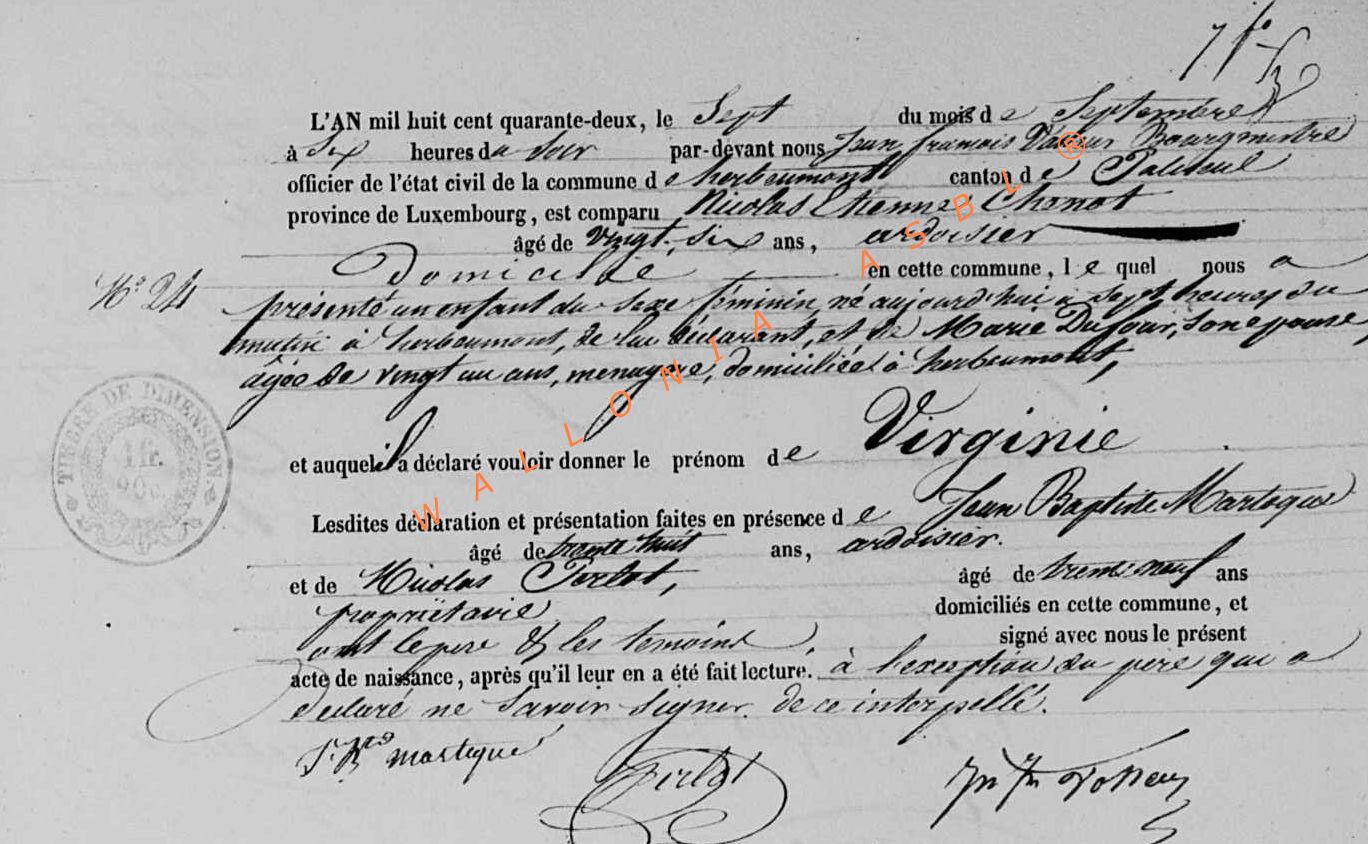 7 f
L'AN mil huit cent quarante-deux, le Sept du mois de Septembre
à Six heures du Soir par-devant nous Jean françois Bourgmestre
officier de l'état civil de la commune de herbeumont canton de Paliseul
province de Luxembourg, est comparu Nicolas Etienne Chonot
âgé de vingt-six ans, ardoisier
Domicilié en cette commune, lequel nous a
N° 24
présenté un enfant du sexe féminin, né aujourd'hui à Sept heures du
matin à herbeumont, de lui déclarant, et de Marie Dufour, son epouse,
âgée de vingt un ans, menagère, domiciliée à herbeumont,
TIMBRE DE DIMENSION.
1 fr.
20 c.
et auquel il a déclaré vouloir donner le prénom de Virginie
Lesdites déclaration et présentation faites en présence de Jean Baptiste
âgé de trente huit ans, ardoisier.
et de Nicolas Perlot, âgé de trente neuf ans
propriétaire domiciliés en cette commune, et
ont le pere & les temoins signé avec nous le présent
acte de naissance, après qu'il leur en a été fait lecture. à l'exception du père qui a
declaré ne Savoir Signer. de ce interpellé.
Perlot
WALLONIA ASBL ®